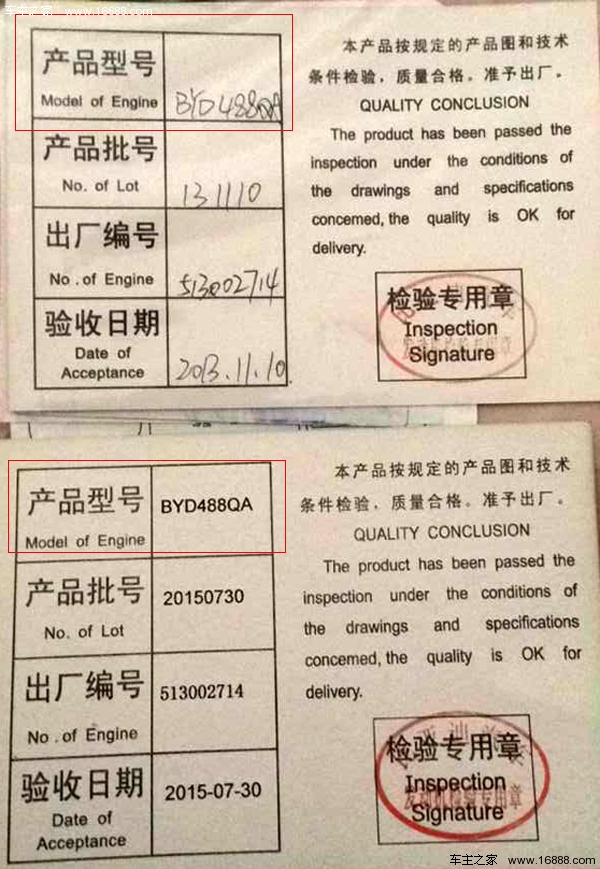 车主之家 www.16888.com
产品型号
Model of Engine
BYD488QA
产品批号
No. of Lot
131110
出厂编号
No. of Engine
513002714
验收日期
Date of
Acceptance
2013.11.10
本产品按规定的产品图和技术
条件检验，质量合格。准予出厂。
QUALITY CONCLUSION
The product has been passed the
inspection under the conditions of
the drawings and specifications
concemed, the quality is OK for
delivery.
检验专用章
Inspection
Signature
产品型号
Model of Engine
BYD488QA
产品批号
No. of Lot
20150730
出厂编号
No. of Engine
513002714
验收日期
Date of
Acceptance
2015-07-30
本产品按规定的产品图和技术
条件检验，质量合格。准予出厂。
QUALITY CONCLUSION
The product has been passed the
inspection under the conditions of
the drawings and specifications
concemed, the quality is OK for
delivery.
检验专用章
Inspection
发动机检验专用章
Signature
车主之家 www.16888.com